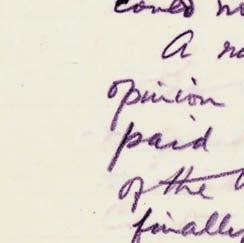 could
A
opinion
paid
of the
finally